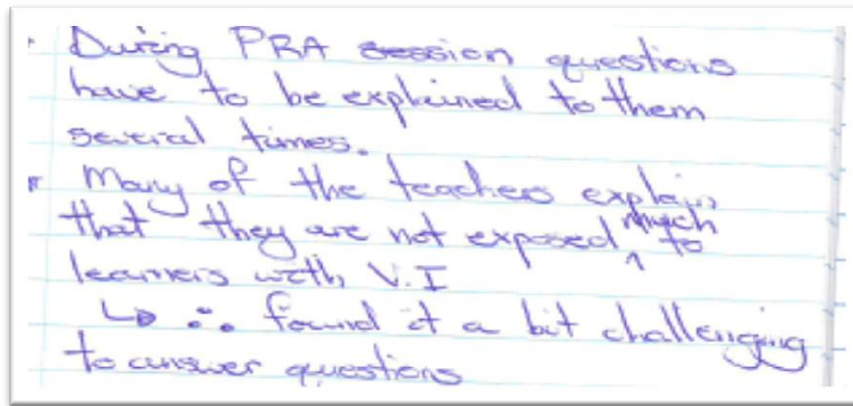 • During PRA session questions
have to be explained to them
several times.
• Many of the teachers explain
that they are not exposed much to
learners with V.I
↳ ∴ found it a bit challenging
to answer questions